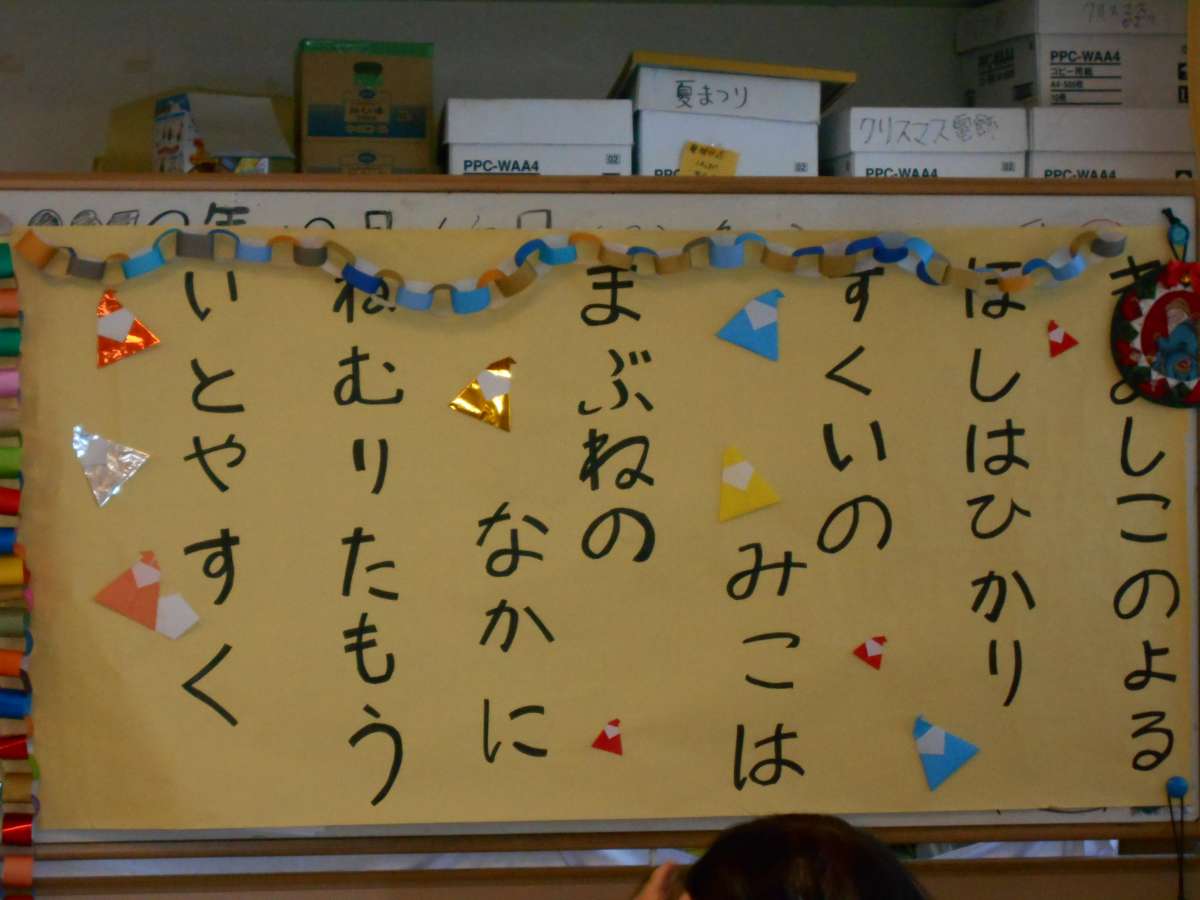 夏まつり
クリスマス電飾
PPC-WAA4
コピー用紙
PPC-WAA4
PPC-WAA4
PPC-WAA4
PPC-WAA4
きよしこのよる
ほしはひかり
すくいの
みこは
まぶねの
なかに
ねむりたもう
いとやすく